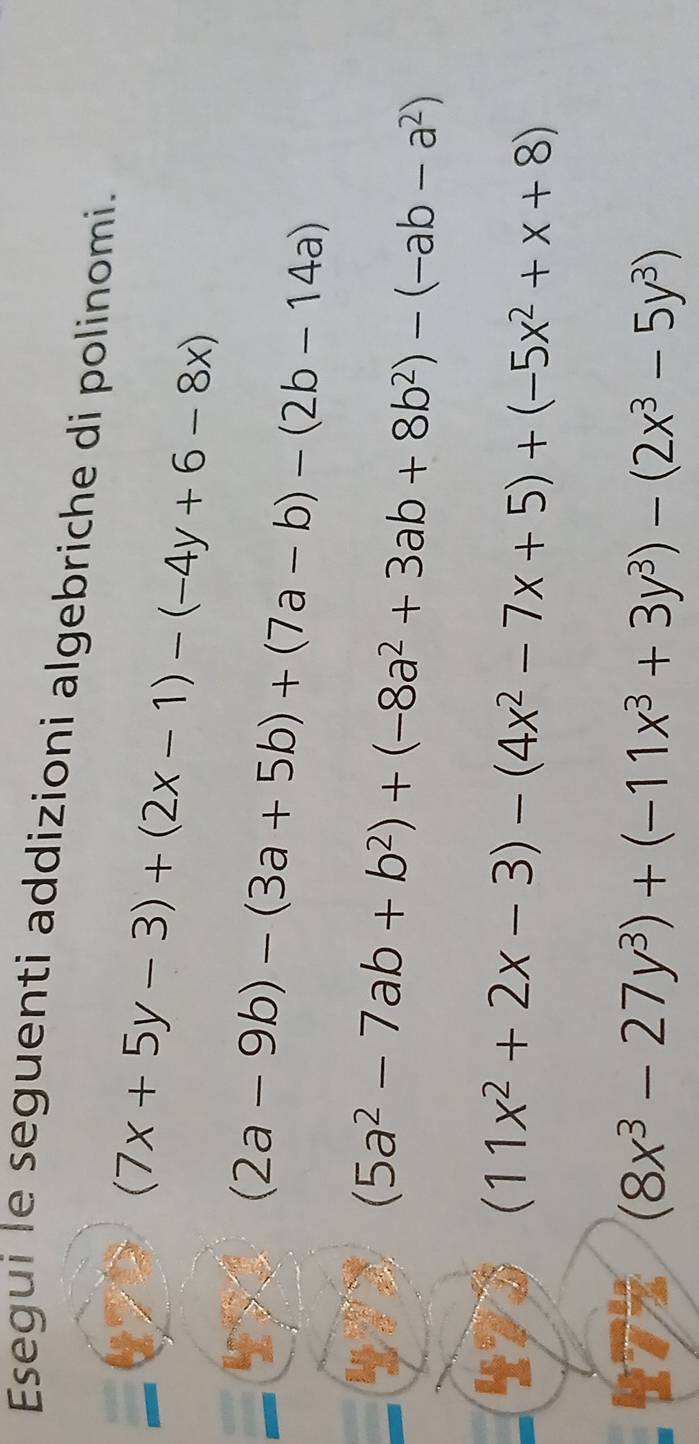 Esegui le seguenti addizioni algebriche di polinomi.
470 (7x + 5y − 3) + (2x − 1) − (−4y + 6 − 8x)
471 (2a − 9b) − (3a + 5b) + (7a − b) − (2b − 14a)
472 (5a² − 7ab + b²) + (−8a² + 3ab + 8b²) − (−ab − a²)
473 (11x² + 2x − 3) − (4x² − 7x + 5) + (−5x² + x + 8)
474 (8x³ − 27y³) + (−11x³ + 3y³) − (2x³ − 5y³)